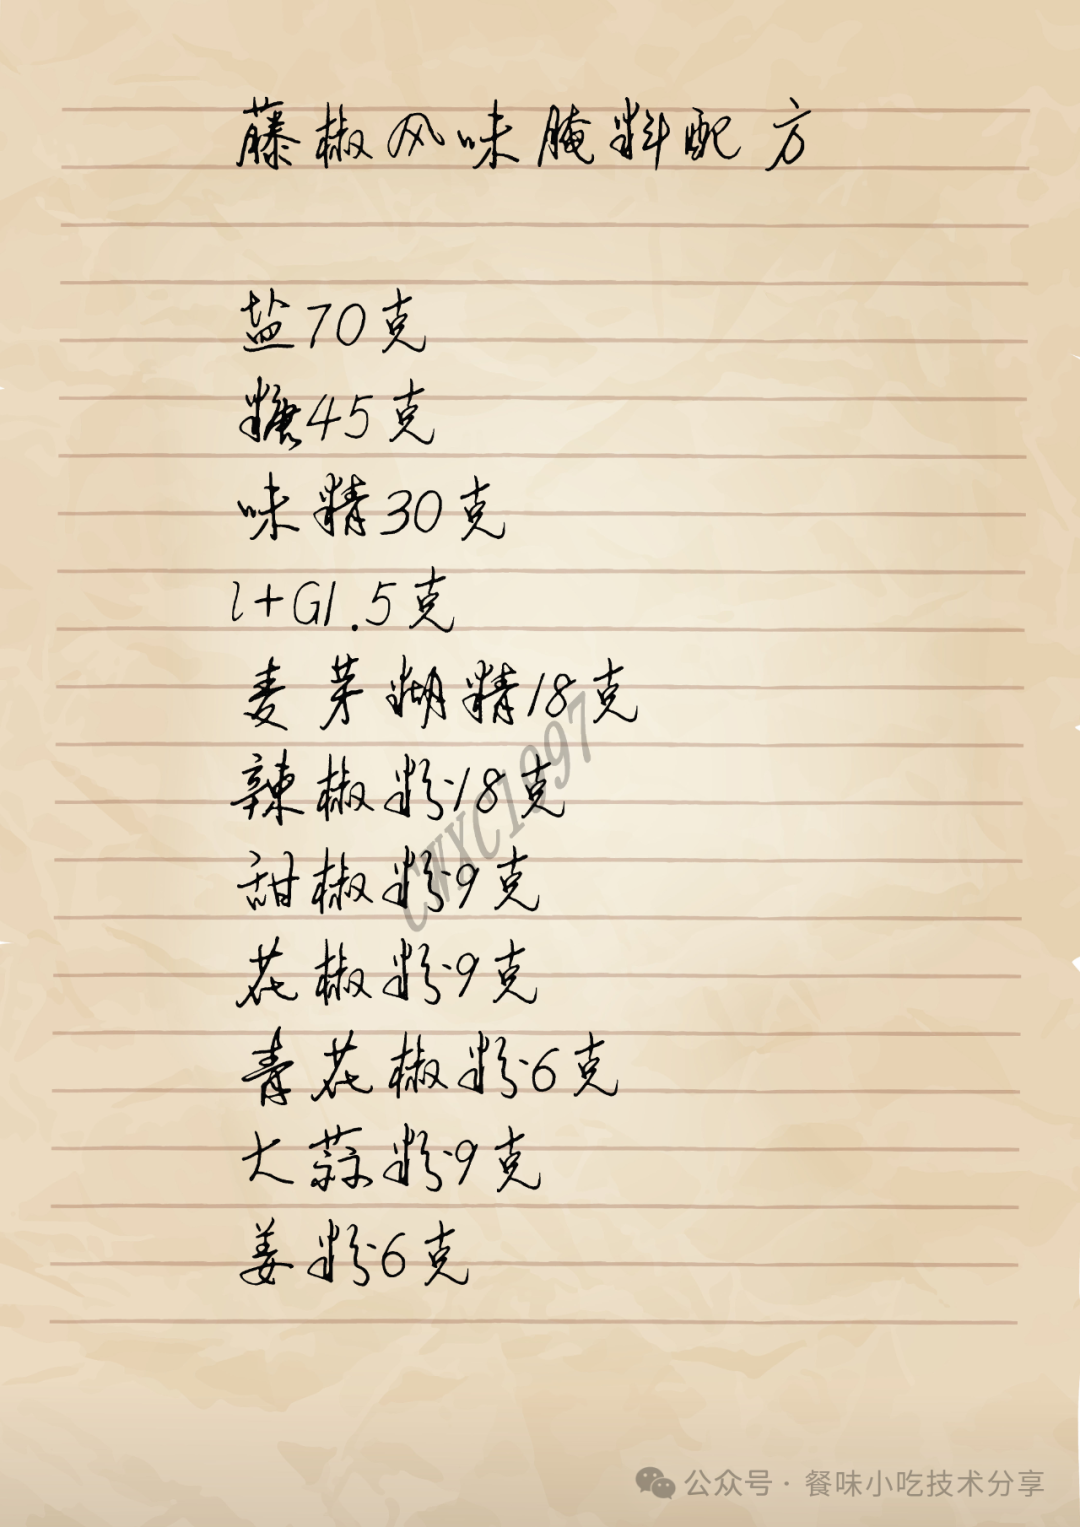 藤椒风味腌料配方
盐70克
糖45克
味精30克
l+G1.5克
麦芽糊精18克
辣椒粉18克
甜椒粉9克
花椒粉9克
青花椒粉6克
大蒜粉9克
姜粉6克
CWXC1997
公众号·餐味小吃技术分享